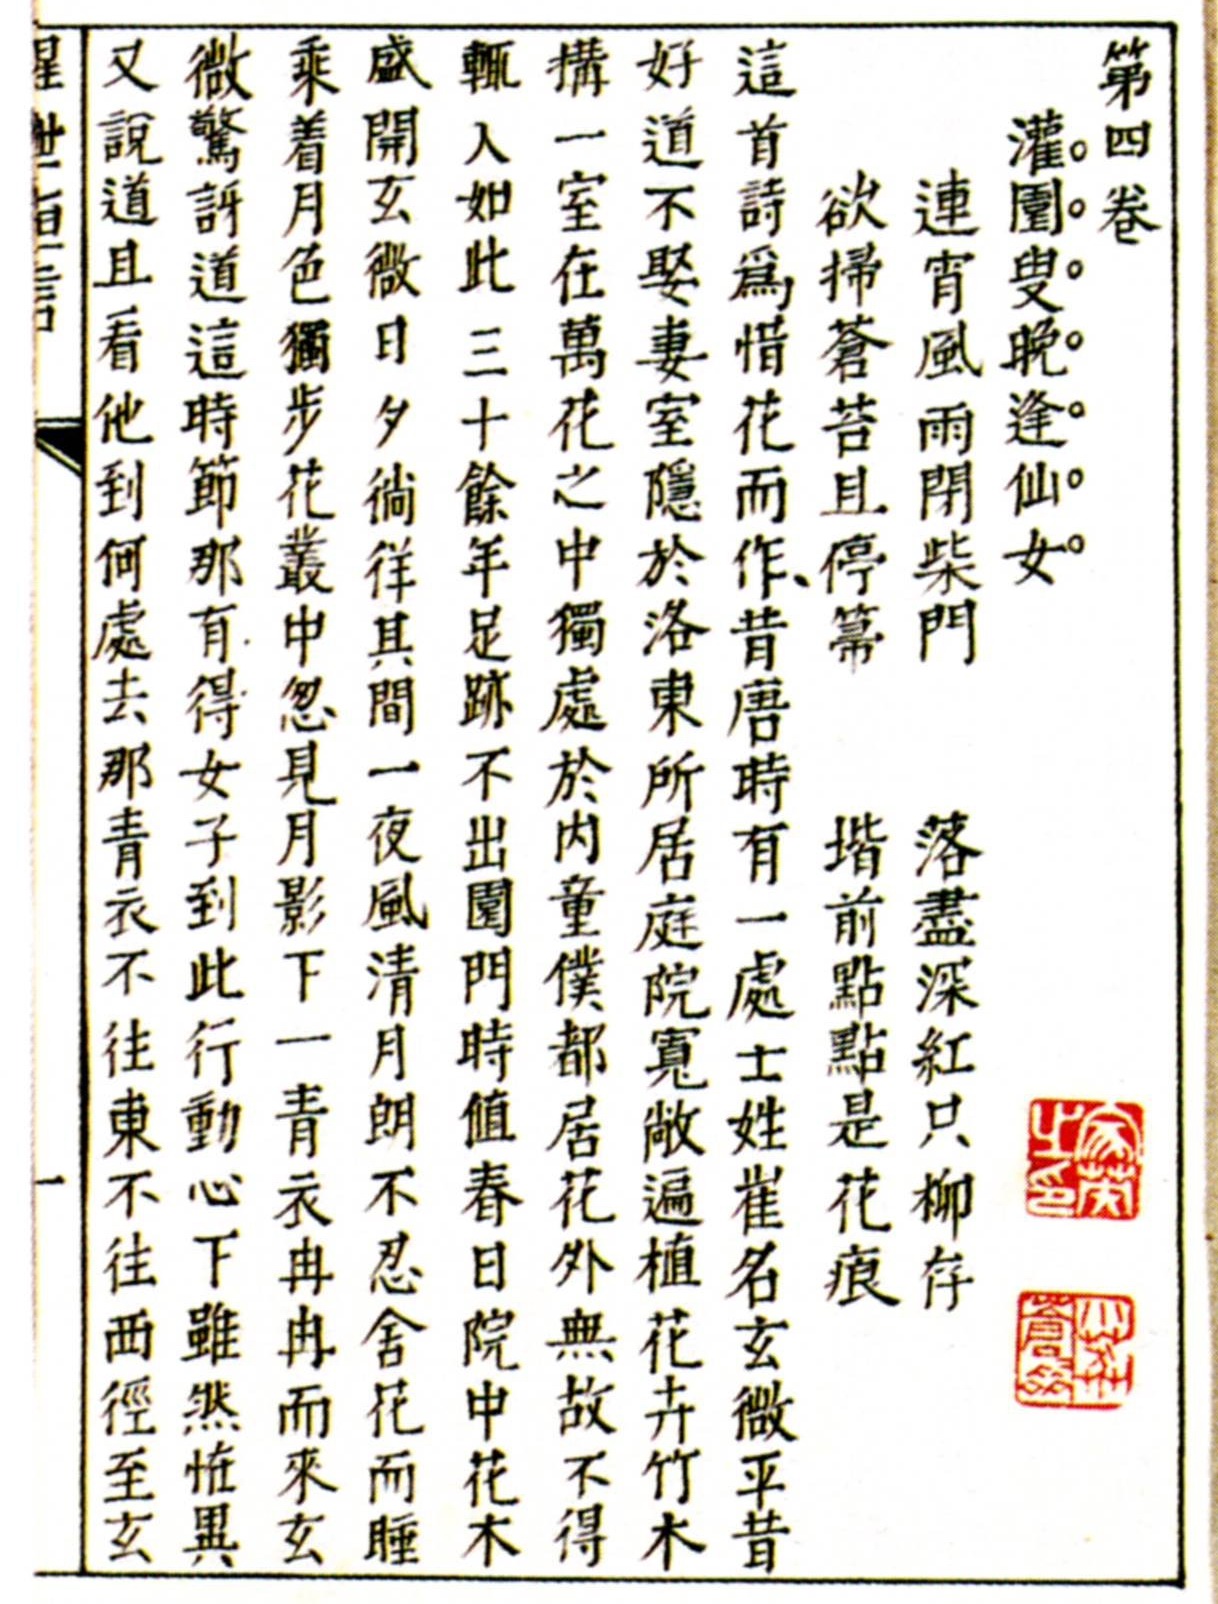 第四卷
灌園叟晚逢仙女
連宵風雨閉柴門　落盡深紅只柳存
欲掃蒼苔且停箒　堦前點點是花痕
這首詩爲惜花而作、昔唐時有一處士姓崔名玄微平昔
好道不娶妻室隱於洛東所居庭院寬敞遍植花卉竹木
搆一室在萬花之中獨處於内童僕都居花外無故不得
輒入如此三十餘年足跡不出園門時值春日院中花木
盛開玄微日夕徜徉其間一夜風清月朗不忍舍花而睡
乘着月色獨步花叢中忽見月影下一青衣冉冉而來玄
微驚訝道這時節那有得女子到此行動心下雖然恠異
又說道且看他到何處去那青衣不往東不往西徑至玄
醒世恒言
一